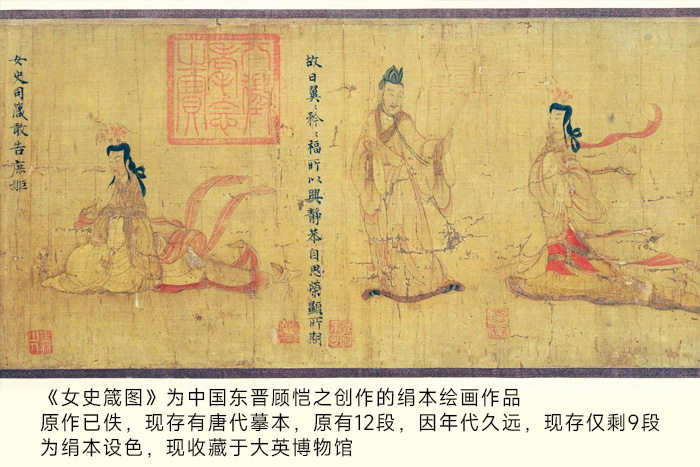 故曰翼〻矜〻福所以興靜恭自思榮顯所期
女史司箴敢告庶姬
《女史箴图》为中国东晋顾恺之创作的绢本绘画作品
原作已佚，现存有唐代摹本，原有12段，因年代久远，现存仅剩9段
为绢本设色，现收藏于大英博物馆